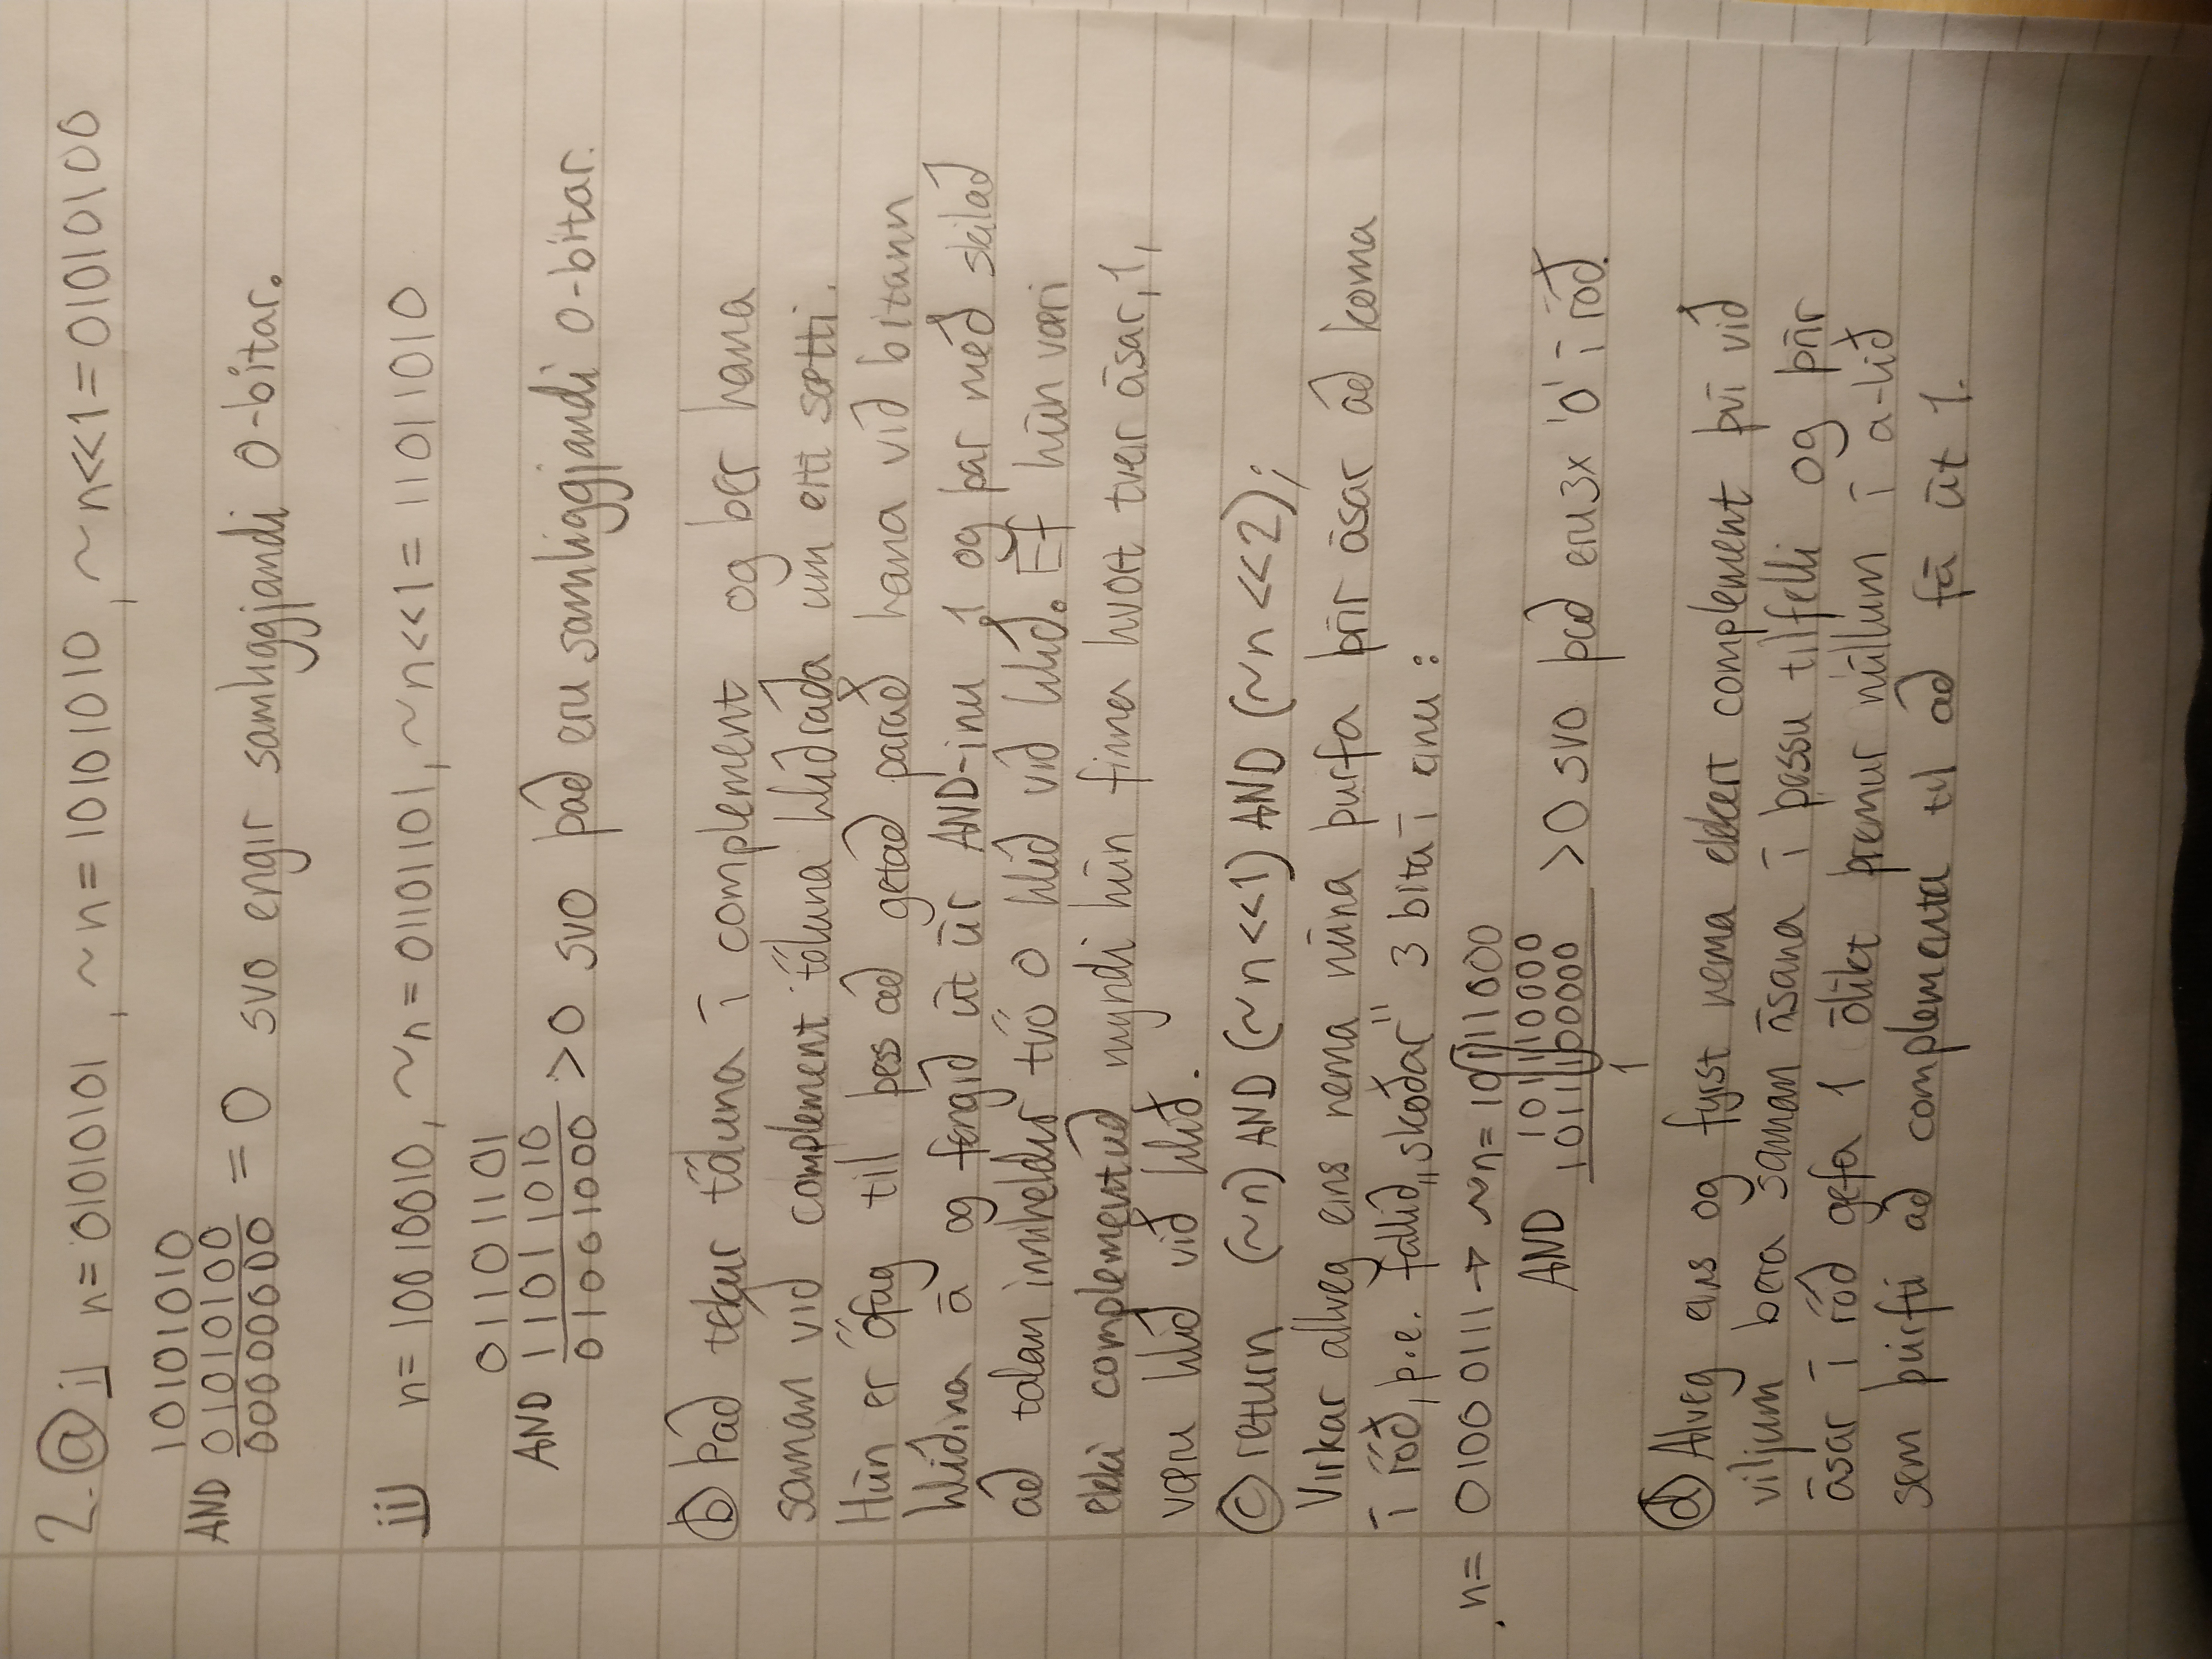 2. ⓐ i) n= 01010101, ~n= 10101010, ~n<<1= 01010100
10101010
AND 01010100
00000000 = 0 svo engir samliggjandi 0-bitar.
ii) n= 10010010, ~n= 01101101, ~n<<1= 11011010
01101101
AND 11011010
01001000 >0 svo það eru samliggjandi 0-bitar.
ⓑ Það tekur töluna í complement og ber hana
saman við complement töluna hliðraða um eitt sætti.
Hún er öfug til þess að getað parað hana við bitann
hliðina á og fengið út úr AND-inu 1 og þar með skilað
að talan inniheldur tvö 0 hlið við hlið. Ef hún væri
ekki complementuð myndi hún finna hvort tveir ásar, 1,
væru hlið við hlið.
ⓒ return (~n) AND (~n<<1) AND (~n<<2);
Virkar allveg eins nema núna þurfa þrír ásar að koma
í röð, þ.e. fallið „skoðar" 3 bita í einu:
n= 01000111 → ~n= 10111000
101110000
AND 1011100000 >0 svo það eru 3x '0' í röð.
1
ⓓ Alveg eins og fyrst nema ekkert complement því við
viljum bera saman ásana í þessu tilfelli og þrír
ásar í röð gefa 1 ólíkt þremur núllum í a-lið
sem þurfti að complementa til að fá út 1.